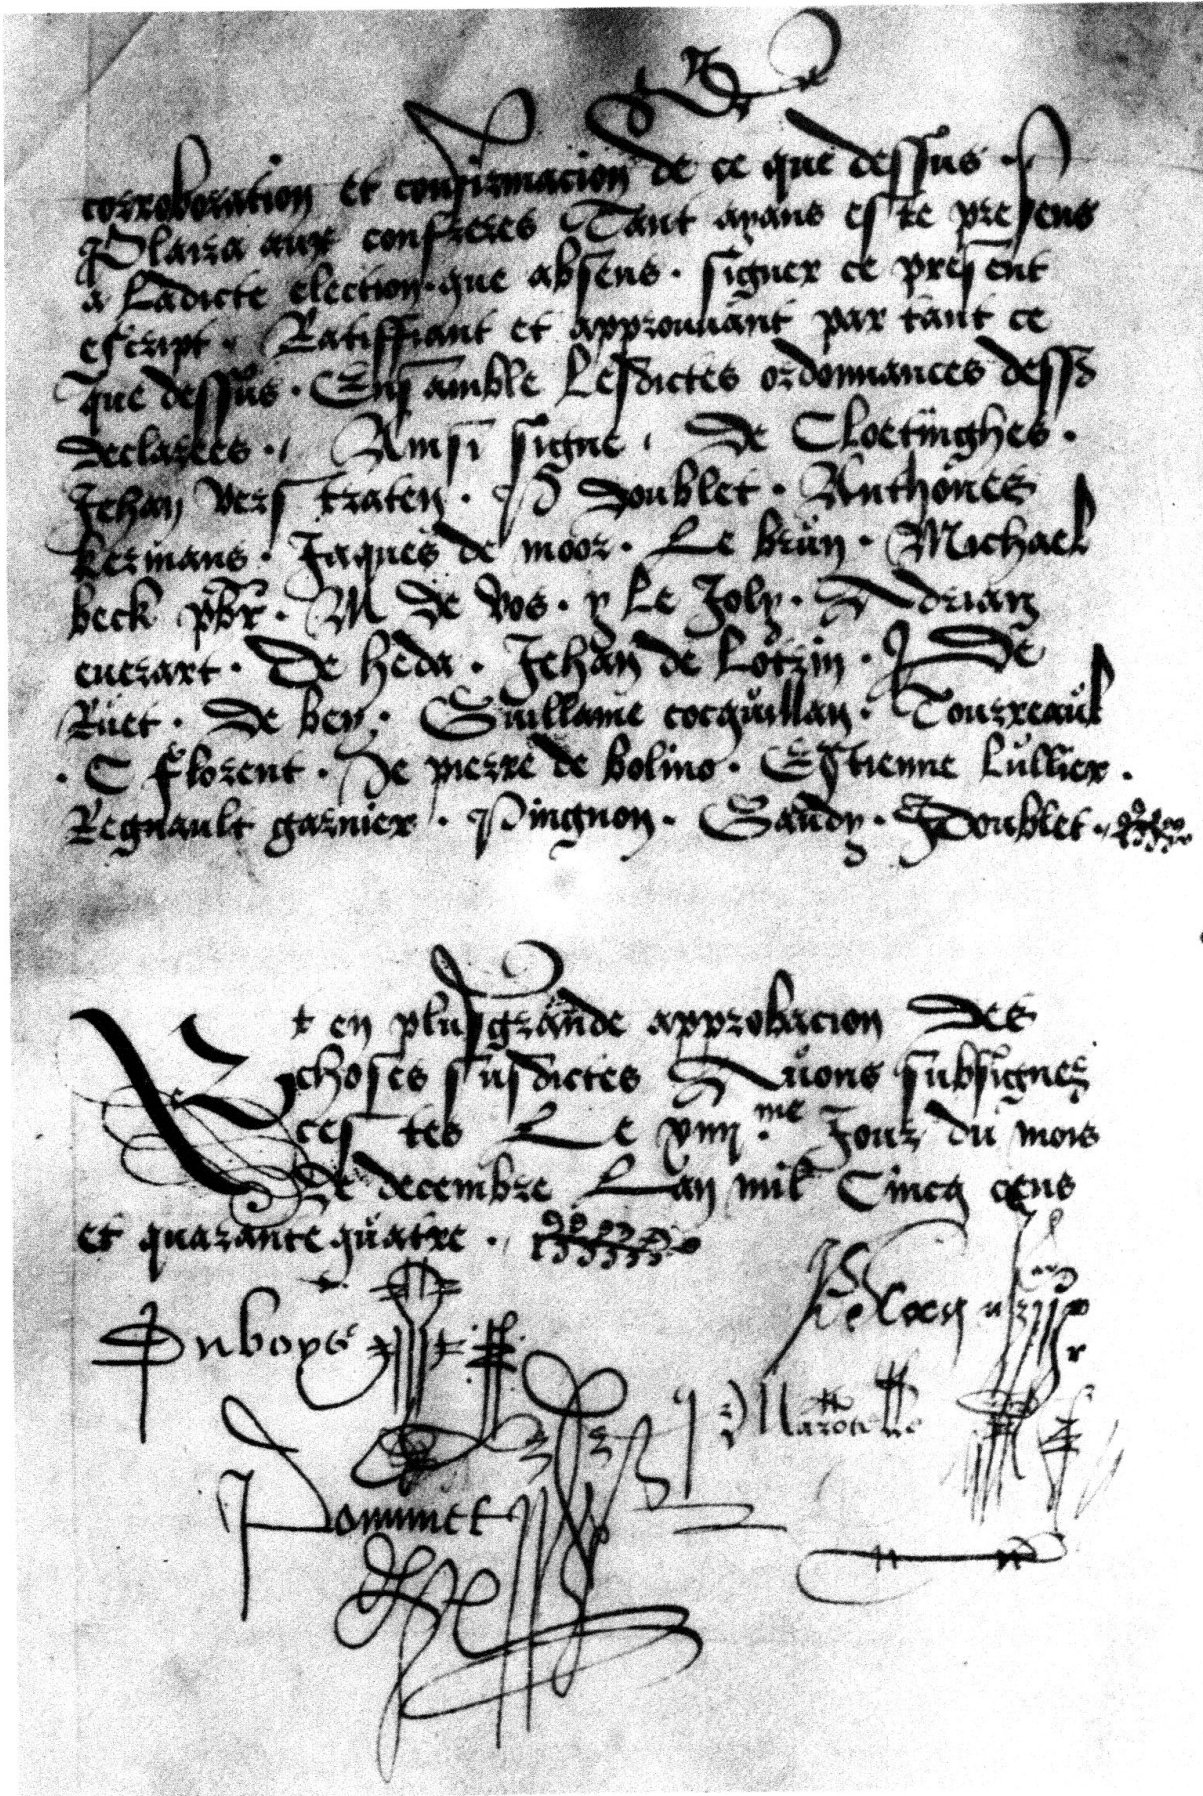 corroboration et confirmacion de ce que dessus .
Plaira aux confreres Tant ayans este presens
a Ladicte election. que absens . signer ce present
escript . Ratiffiant et approuuant par tant ce
que dessus . Ensamble Lesdictes ordonnances dess9
declarees . Ainsi signe . De Cloetinghes .
Jehan verstraten . P doublet . Anthōnēē
kermans . Jaques de moor . Le brun . Michael
beck pbr̄ . M De vos . y Le Joly . Adrian
euerart . De heda . Jehan de Lotrin . J De
Ruet . De bey . Guillame cocquillan . Tourreaul
. C Florent . De pierre de bolino . Estienne Lullier .
Regnault garnier . Pingnon . Gandy . J Doublet .
Et en plus grande approbacion Des
choses susdictes Auons subsignez
cestes Le xviij.me Jour du mois
De decembre Lan mil Cincq cens
et quarante quatre .
Duboys
De Cocq
Marotelle
Pommet